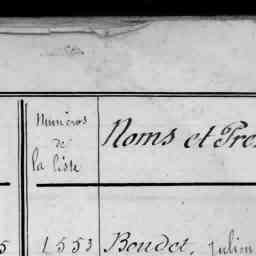 Numéros
de
la liste
Noms et Pré
5 1553 Boudet, Julien